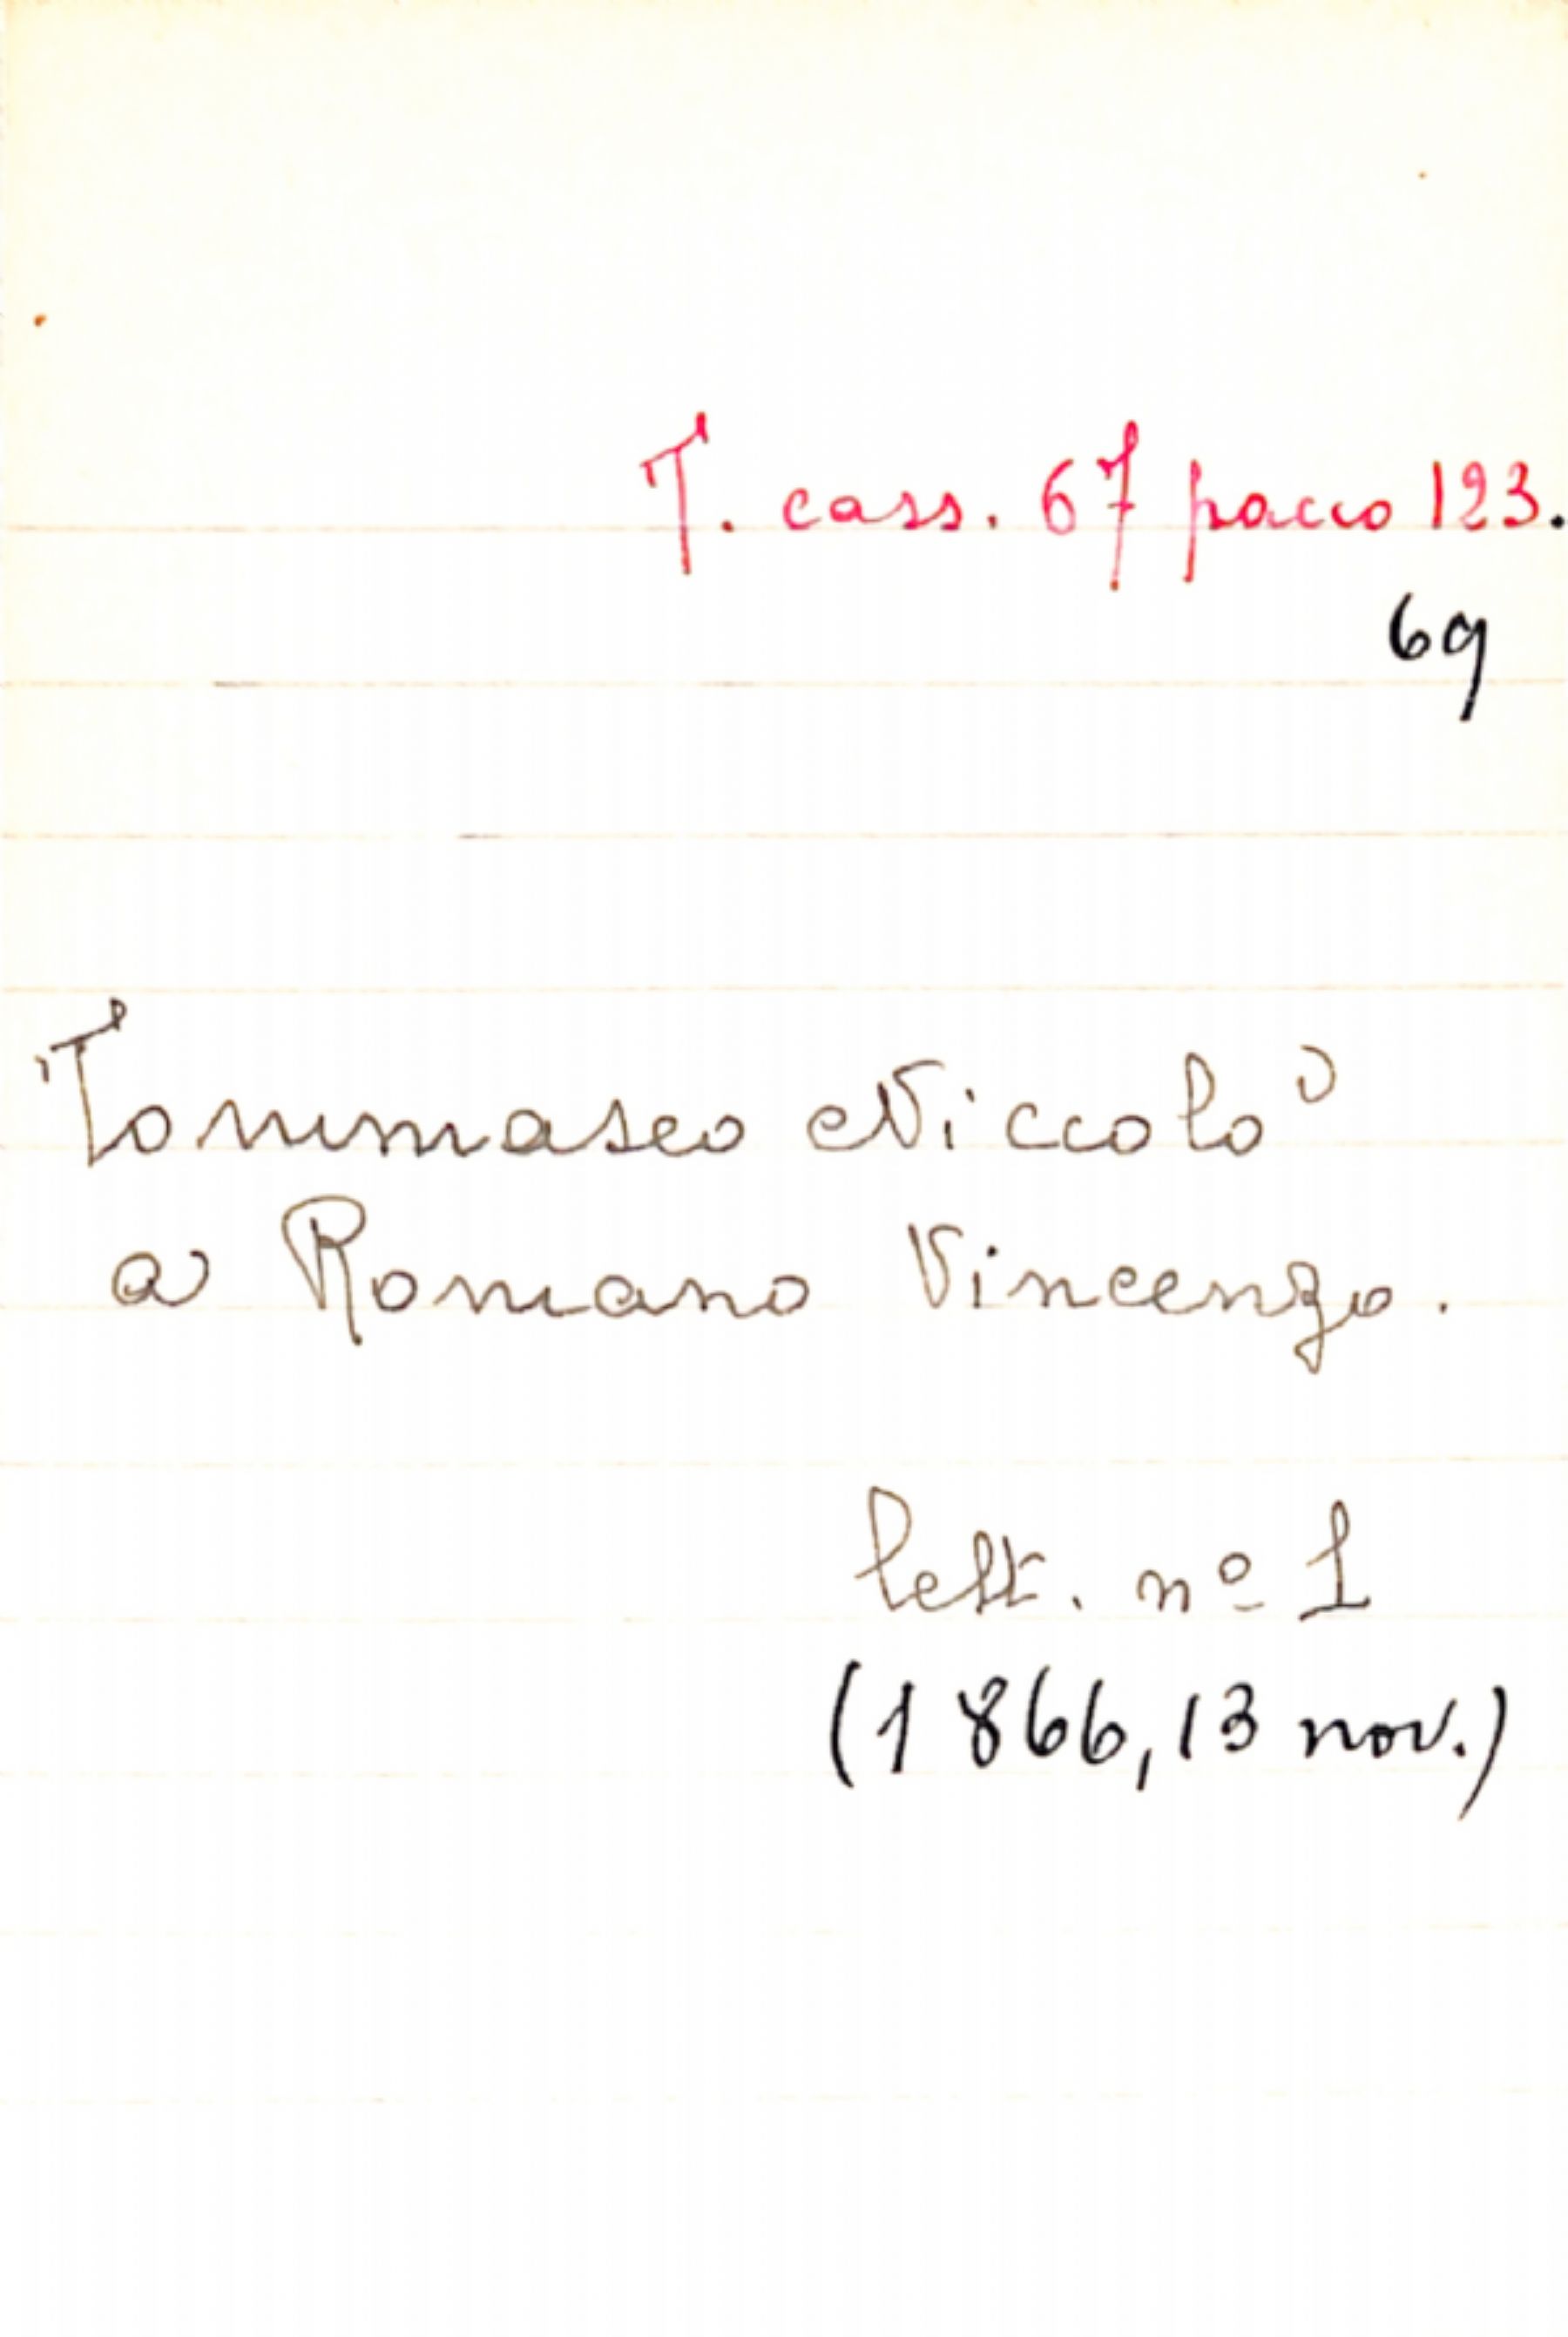 T. cass. 67 pacco 123.
69
Tommaseo Niccolò
a Romano Vincenzo.
lett. nº 1
(1866, 13 nov.)